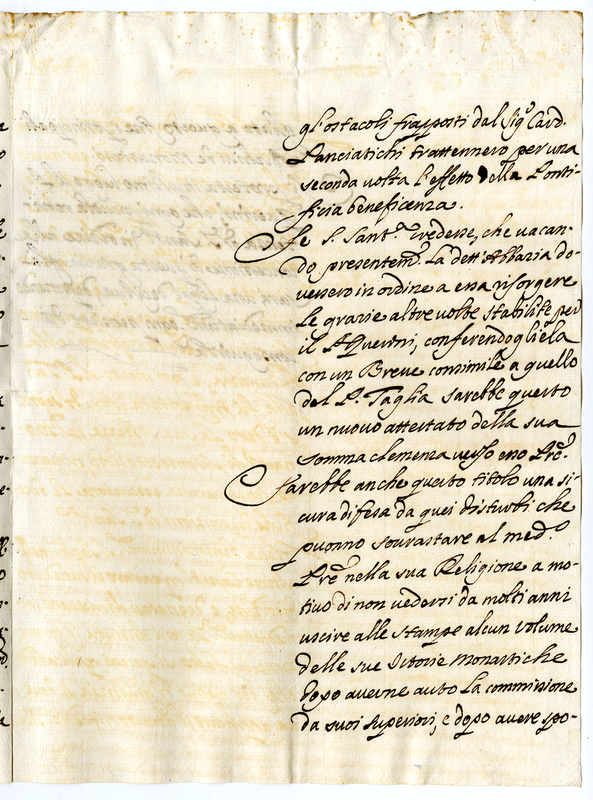 gl'ostacoli frapposti dal Sig.r Card.
Panciatichi trattennero per una
seconda volta l'effetto della Ponti-
ficia beneficenza.
Se S. Sant.à credesse, che vacan-
do presentem.te la dett'Abbazia do-
vessero in ordine a essa risorgere
le grazie altre volte stabilite per
il P. Querini, conferendogliela
con un Breve consimile a quello
del P. Taglia sarebbe questo
un nuovo attestato della sua
somma clemenza verso esso Pre.
Sarebbe anche questo titolo una si-
cura difesa da quei disturbi che
puonno sourastare al med.o
Pre nella sua Religione a mo-
tivo di non vedersi da molti anni
uscire alle stampe alcun volume
delle sue Istorie Monastiche
dopo averne auto la commissione
da suoi superiori, e dopo avere spo-